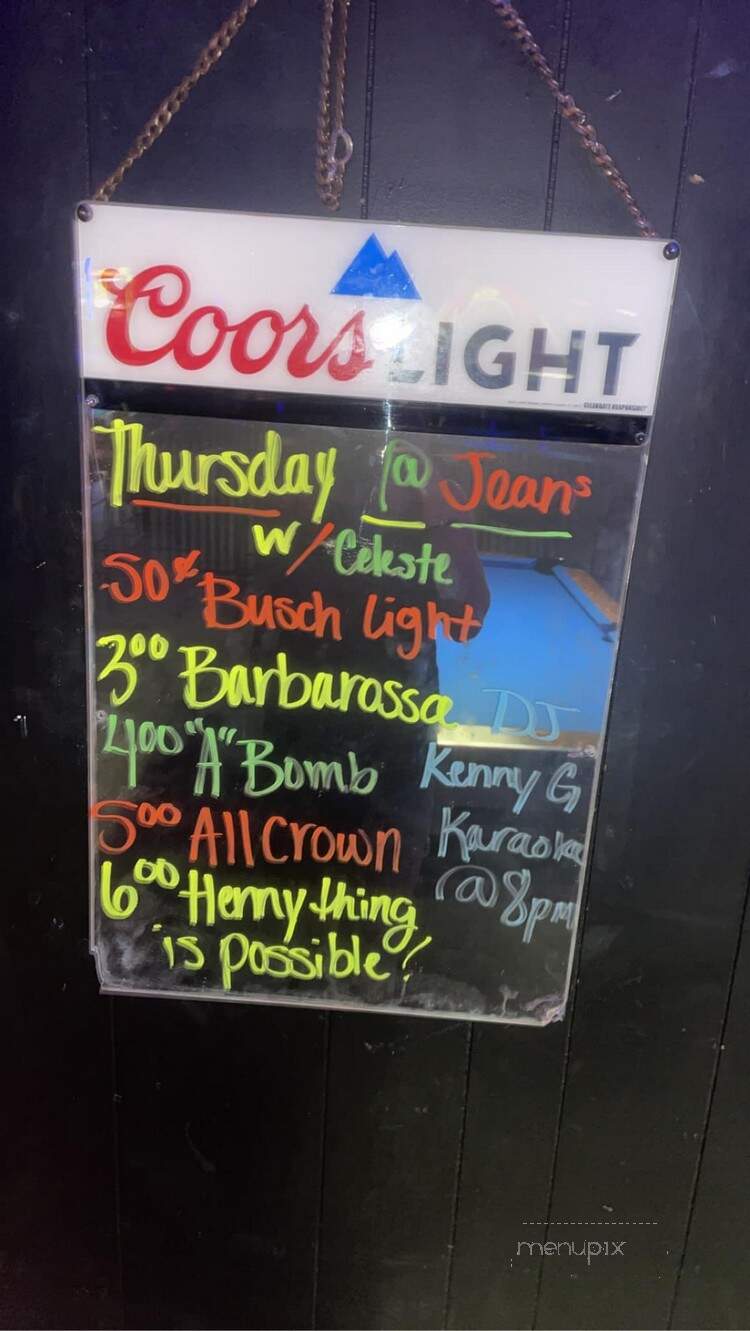 Coors LIGHT
Thursday @ Jeans
w/ Celeste
50¢ Busch Light
3⁰⁰ Barbarossa
4⁰⁰ "A" Bomb
5⁰⁰ All Crown
6⁰⁰ Henny thing
is possible!
DJ
Kenny G
Karaoke
@ 8pm
menupix